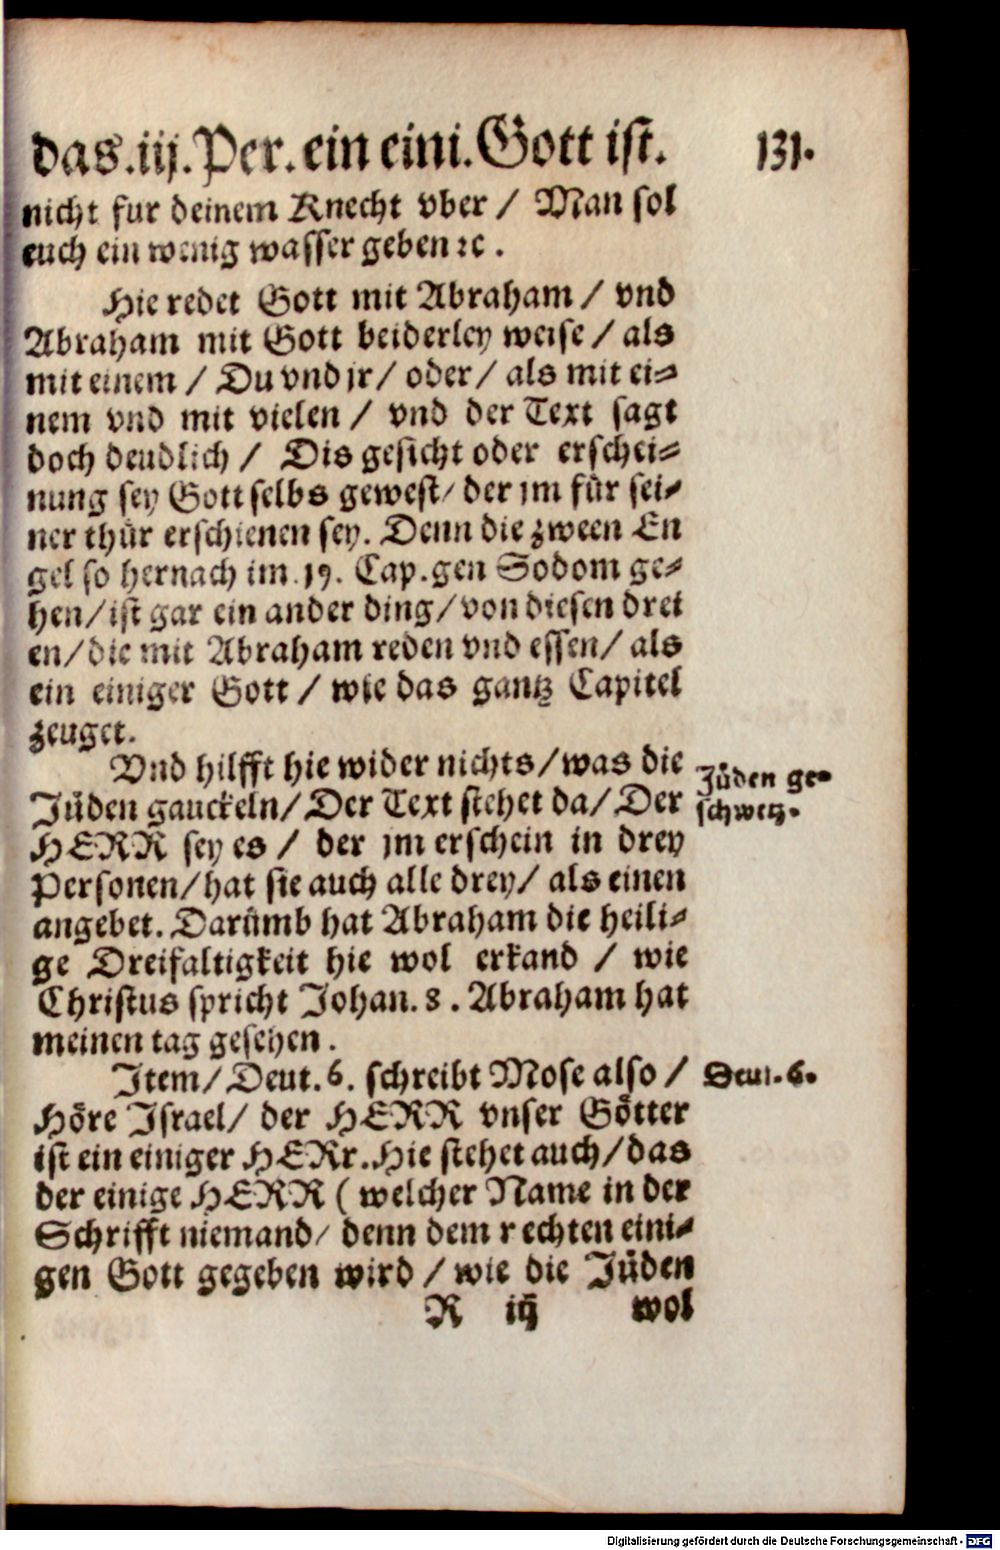 das.iij.Per.ein eini.Gott ist. 131.
nicht fur deinem Knecht vber / Man sol
euch ein wenig wasser geben ꝛc .
Hie redet Gott mit Abraham / vnd
Abraham mit Gott beiderley weise / als
mit einem / Du vnd jr / oder / als mit ei⸗
nem vnd mit vielen / vnd der Text sagt
doch deudlich / Dis gesicht oder erschei⸗
nung sey Gott selbs gewest / der jm für sei⸗
ner thür erschienen sey. Denn die zween En
gel so hernach im .19. Cap.gen Sodom ge⸗
hen / ist gar ein ander ding / von diesen drei
en / die mit Abraham reden vnd essen / als
ein einiger Gott / wie das gantz Capitel
zeuget.
Vnd hilfft hie wider nichts / was die
Jüden gauckeln / Der Text stehet da / Der
HERR sey es / der jm erschein in drey
Personen / hat sie auch alle drey / als einen
angebet. Darümb hat Abraham die heili⸗
ge Dreifaltigkeit hie wol erkand / wie
Christus spricht Johan. 8 . Abraham hat
meinen tag gesehen .
Jüden ge⸗
schwetz.
Item / Deut. 6. schreibt Mose also /
Höre Israel / der HERR vnser Götter
ist ein einiger HERr. Hie stehet auch / das
der einige HERR ( welcher Name in der
Schrifft niemand / denn dem rechten eini⸗
gen Gott gegeben wird / wie die Jüden
Deut. 6.
R iij wol
Digitalisierung gefördert durch die Deutsche Forschungsgemeinschaft - DFG